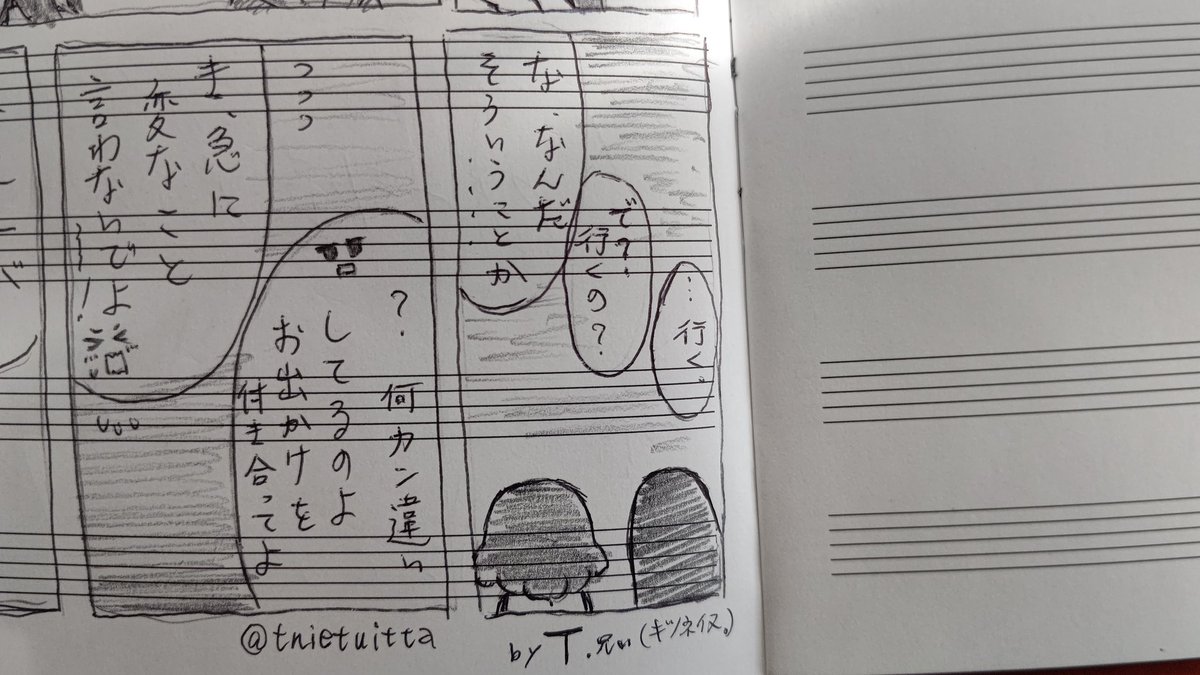 つつつ
き、急に
変なこと
言わないでよ!
? 何カン違い
してるのよ
お出かけを
付き合ってよ
な、なんだ
そういうことか……
で?
行くの?
…行く。
@tnietuitta
by T.兄ぃ(ギツネイヌ。)